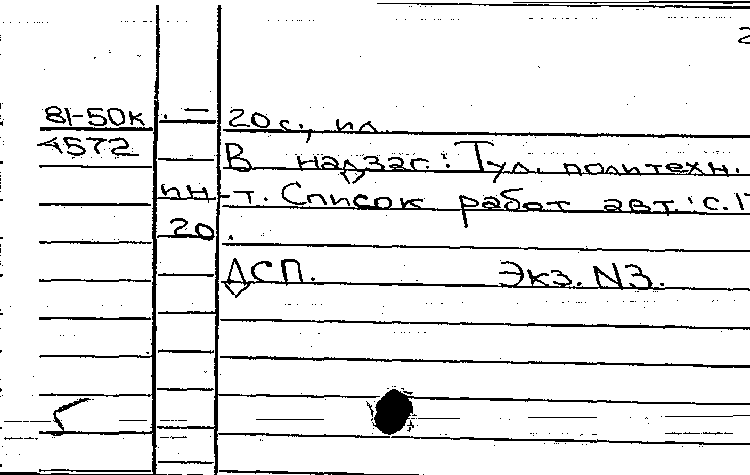 2
81-50к . — 20 с., ил.
4572 В надзаг.: Тул. политехн.
ин-т. Список работ авт.: с. 17
20.
ДСП. Экз. N3.